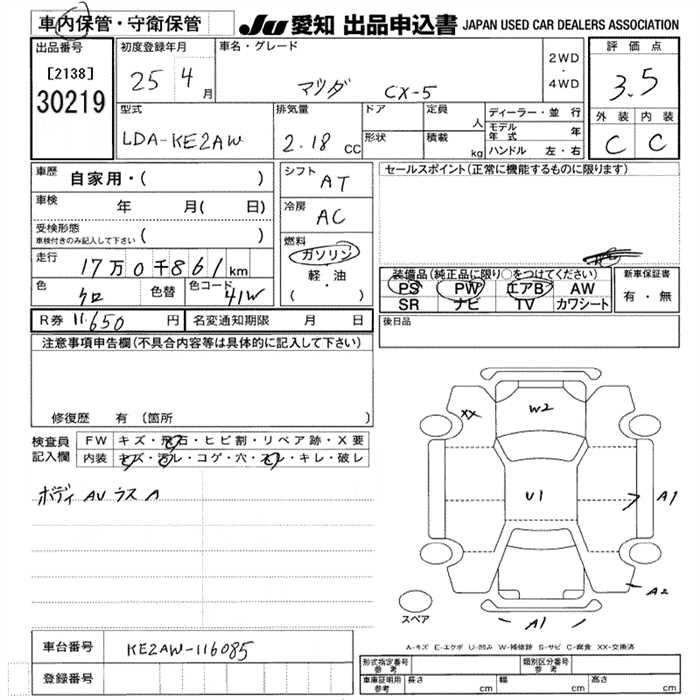 車内保管・守衛保管 JU 愛知 出品申込書 JAPAN USED CAR DEALERS ASSOCIATION
出品番号 初度登録年月 車名・グレード 2WD・4WD 評価点
[2138] 25 4月 マツダ CX-5 3.5
30219
型式 排気量 ドア 定員 人 ディーラー・並行 外装 内装
LDA-KE2AW 2.18 CC 形状 積載 kg モデル年式 年 C C
ハンドル 左・右
車歴 自家用・( ) シフト AT セールスポイント(正常に機能するものに限ります)
車検 年 月( 日) 冷房 AC
受検形態 ( )
車検付きのみ記入して下さい
燃料 ガソリン 軽・油 ( ・ )
走行 17万0千861km 装備品(純正品に限り○をつけてください) 新車保証書
色 クロ 色替 色コード 41W PS PW エアB AW 有・無
SR ナビ TV カワシート
R券 11,650 円 名変通知期限 月 日 後日品
注意事項申告欄(不具合内容等は具体的に記入して下さい)
修復歴 有(箇所 )
検査員記入欄 FW キズ・飛石・ヒビ割・リペア跡・X要
内装 キズ・汚レ・コゲ・穴・スレ・キレ・破レ
ボディ AU ラス A
XX W2
U1 A1
A2
スペア A1
A-キズ E-エクボ U-凹み W-補修跡 S-サビ C-腐食 XX-交換済
車台番号 KE2AW-116085
登録番号
形式指定番号 参考 類別区分番号 参考
車庫証明用 参考 長さ cm 幅 cm 高さ cm